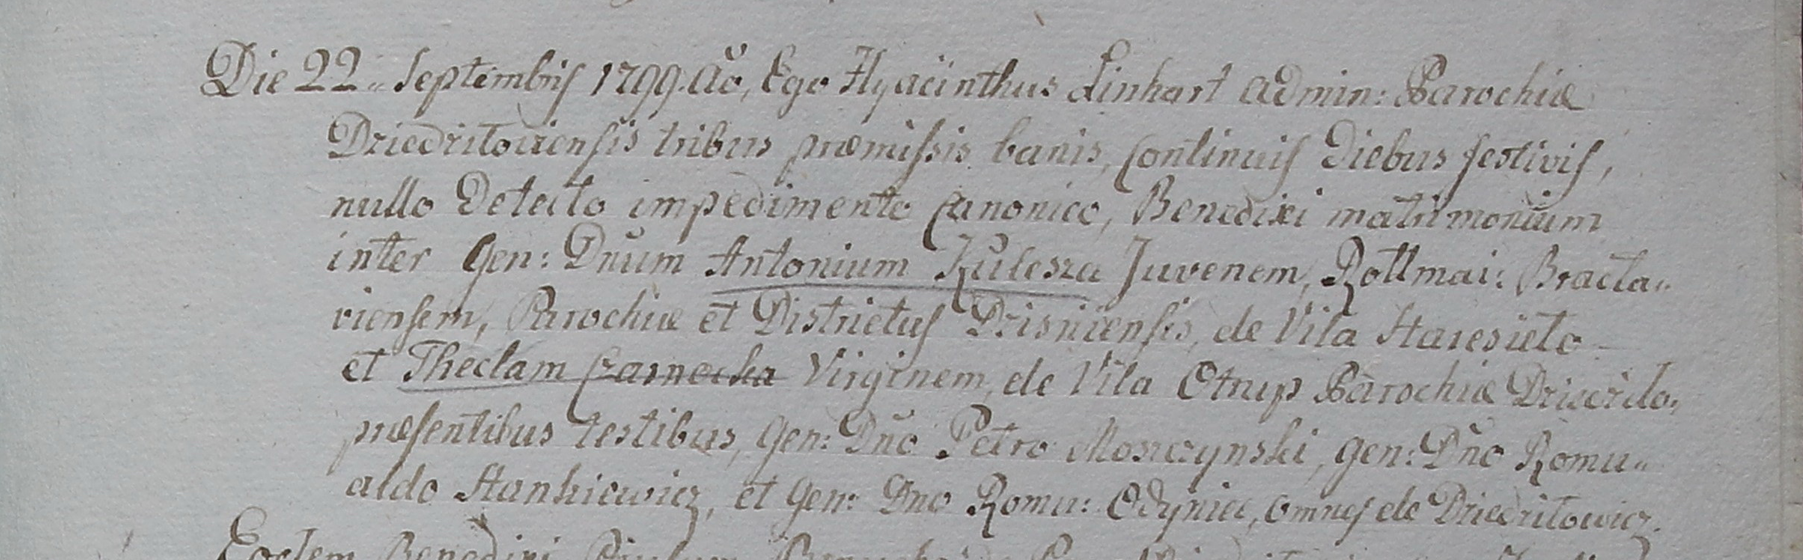 Die 22„ Septembris 1799 Aõ, Ego Hyacinthus Linhart admin: Parochiæ
Dziedzitoviensis tribus præmissis banis, Continuis Diebus festivis,
nullo Detecto impedimento Canonico, Benedixi matrimonium
inter Gen: Dnum Antonium Kulesza Juvenem, Rottmai: Bracta„
viensem, Parochiæ et Districtus Dzisniensis, de Vila Staresioto
et Theclam Czarnocka Virginem, de Vila Otrup Parochiæ Dziedzilo,
præsentibus testibus, Gen: Dño Petro Moszczynski, Gen: Dño Romu„
aldo Stankiewicz, et Gen: Dno Romu: Odyniec, omnes de Dziedzitowicz.
Eodem Benedixi